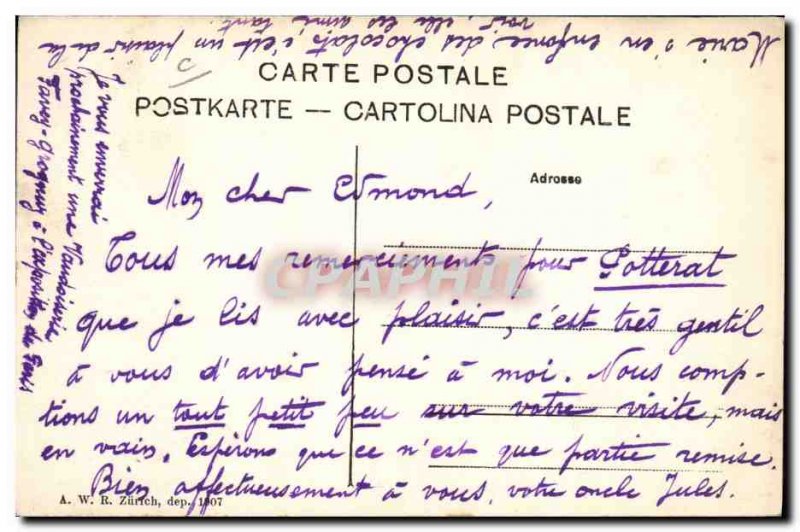 Marie s'en enfonce des chocolats, c'est un plaisir de la
voir, elle les aime tant.
CARTE POSTALE
POSTKARTE — CARTOLINA POSTALE
Adresse
Mon cher Edmond,
Tous mes remerciements pour Potterat
CPAPHIL
que je lis avec plaisir, c'est très gentil
à vous d'avoir pensé à moi. Nous comp-
tions un tout petit peu sur votre visite, mais
en vain. Espérons que ce n'est que partie remise.
Bien affectueusement à vous, votre oncle Jules.
A. W. R. Zürich, dep. 1907
Je vous enverrai
prochainement une Vaudoiserie
Favey-Grognuz à l'exposition de Paris